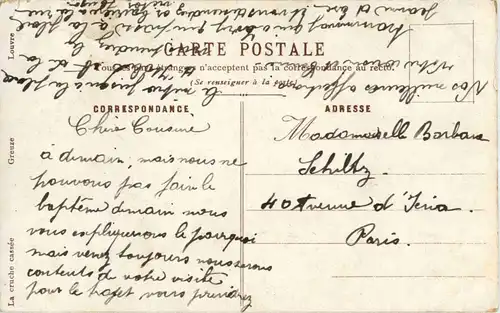 CARTE POSTALE
Tous les pays étrangers n'acceptent pas la correspondance au recto.
(Se renseigner à la poste)
CORRESPONDANCE
ADRESSE
Chère Cousine
à demain, mais nous ne
pouvons pas faire le
baptême demain nous
vous expliquerons le pourquoi
mais venez toujours nous serons
contents de votre visite
pour le trajet vous prendrez
Mademoiselle Barbara
Schiltz
40 Avenue d'Iéna
Paris.
le métro jusqu'à la place
de la
à la place
Nos meilleures affections
Votre cousin
La cruche cassée
Greuze
Louvre